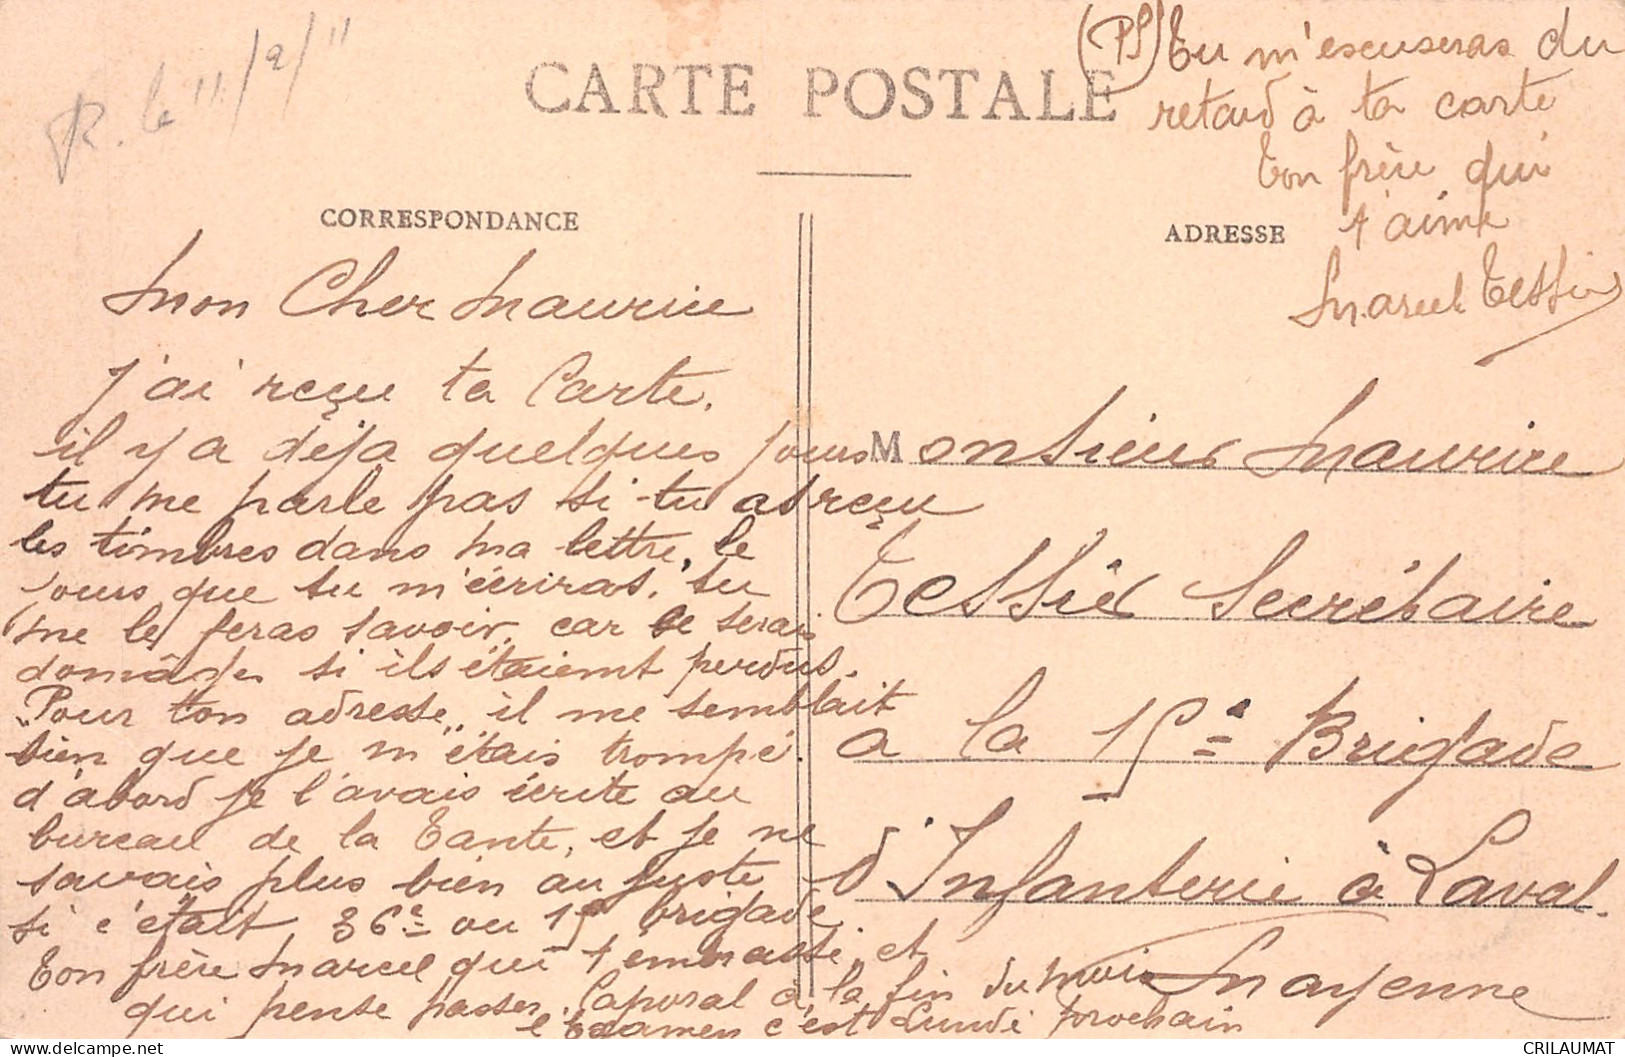 R. le 11/9/11
CARTE POSTALE
(PS) Tu m'escuseras du
retard à ta carte
Ton frère qui
t'aime
Marcel Tessier
CORRESPONDANCE
ADRESSE
Mon Cher Maurice
J'ai reçu ta Carte.
il y a déja quelques jours
tu me parle pas si tu as reçu
les timbres dans ma lettre, le
jours que tu m'écriras, tu
me le feras savoir, car ce serais
domâge si ils étaient perdus.
Pour ton adresse, il me semblait
bien que je m'étais trompé.
d'abord je l'avais écrite au
bureau de la Tante, et je ne
savais plus bien au juste
si c'était 36e ou 15e brigade
Ton frère Marcel qui t'embrasse, et
qui pense passer Caporal à la fin du mois
l'Examen c'est Lundi prochain
Monsieur Maurice
Tessier Secrétaire
a la 15e Brigade
d'Infanterie à Laval.
Mayenne
CRILAUMAT